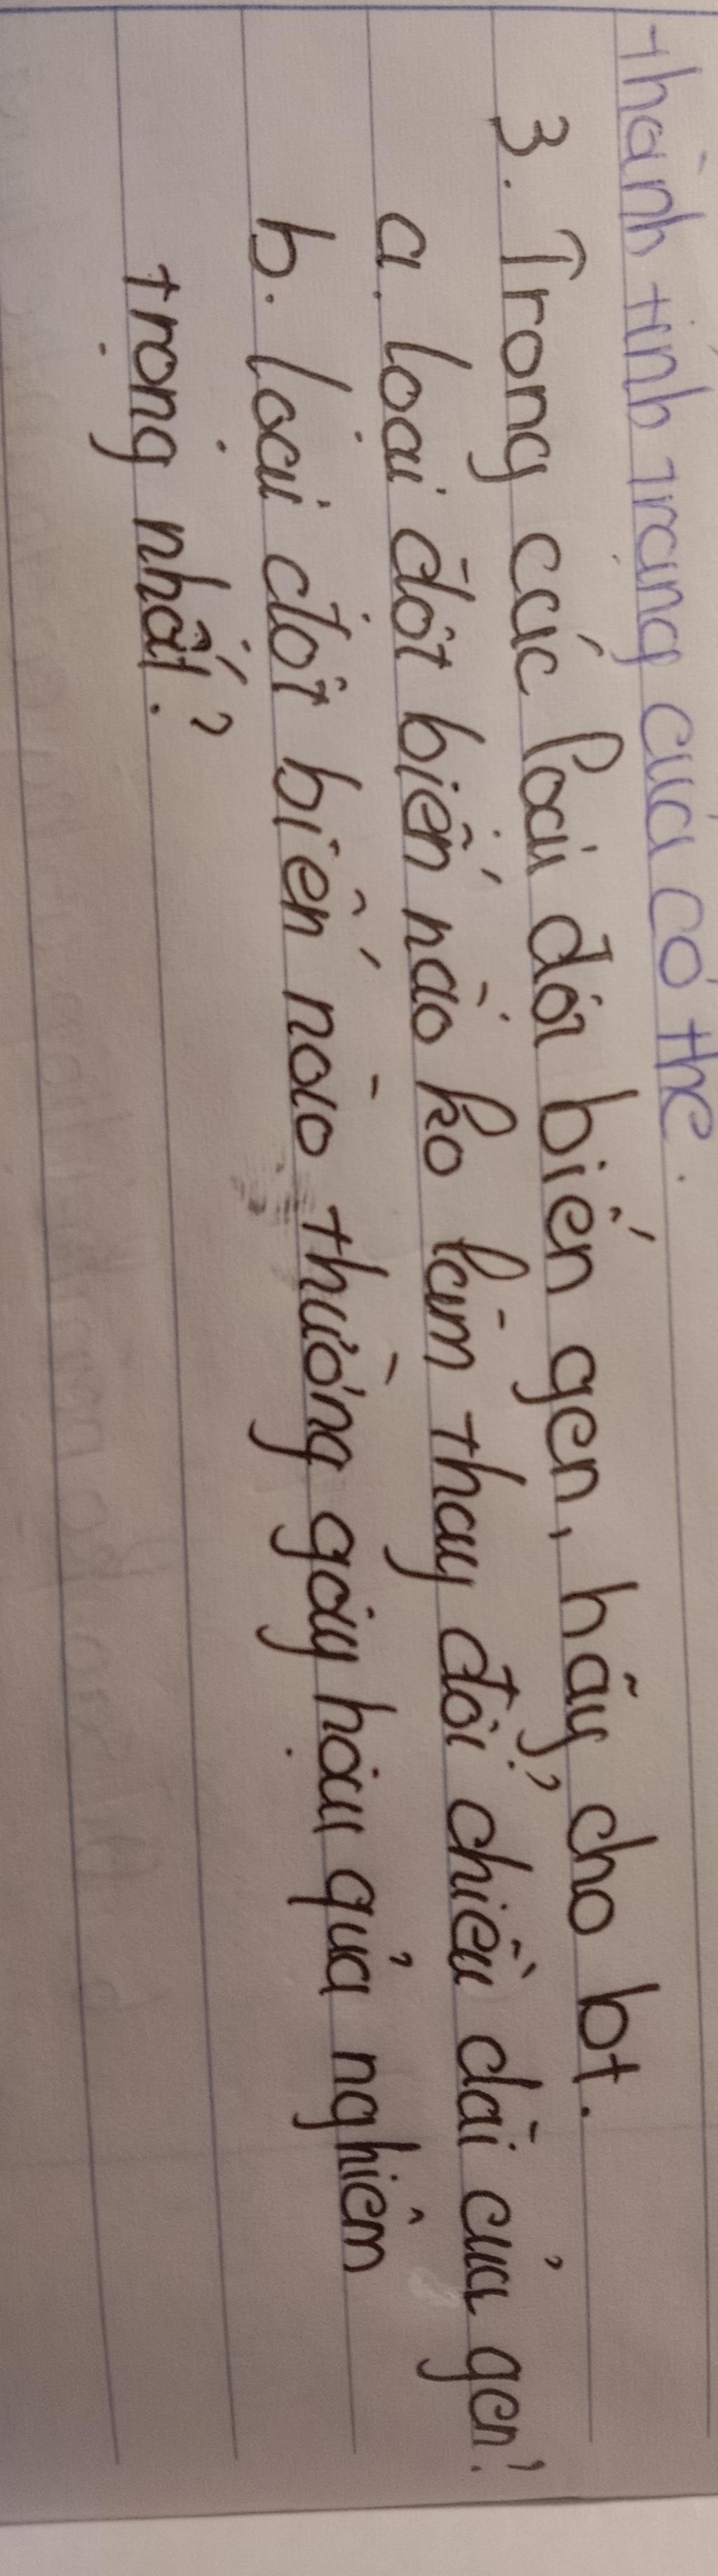 thành tính trạng của cơ thể.
3. Trong các loại đột biến gen, hãy cho bt.
a. loại đột biến nào ko làm thay đổi chiều dài của gen?
b. loại đột biến nào thường gây hậu quả nghiêm
trọng nhất?